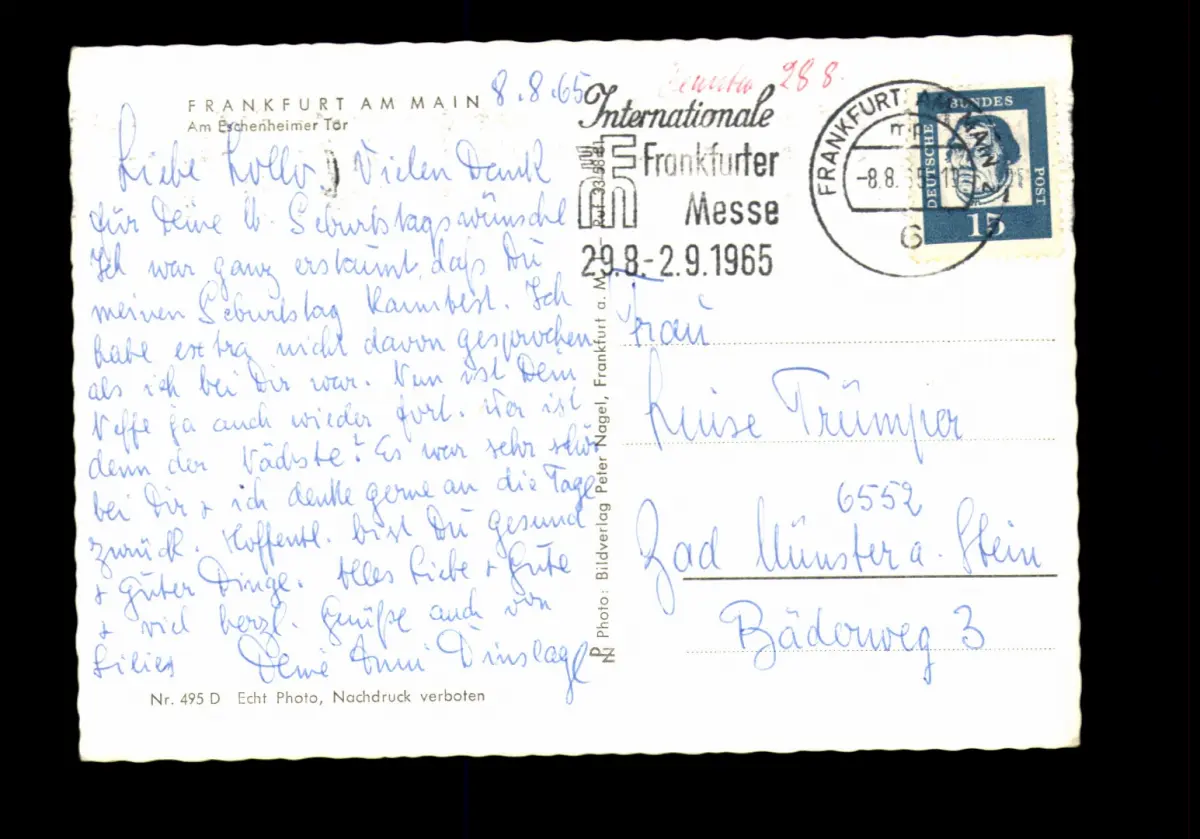 FRANKFURT AM MAIN
Am Eschenheimer Tor
8.8.65
Liebe Lollo! Vielen Dank
für Deine lb. Geburtstagswünsche
Ich war ganz erstaunt, daß Du
meinen Geburtstag kanntest. Ich
habe extra nicht davon gesprochen
als ich bei Dir war. Nun ist Dein
Neffe ja auch wieder fort. Wer ist
denn der Nächste? Es war sehr schön
bei Dir + ich denke gerne an die Tage
zurück. Hoffentl. bist Du gesund
+ guter Dinge. Alles Liebe + Gute
+ viel herzl. Grüße auch von
Deine Anni Dinslage
Nr. 495 D Echt Photo, Nachdruck verboten
Photo: Bildverlag Peter Nagel, Frankfurt a. M. — Ruf 33 58 81
28 8.
Internationale
Frankfurter
Messe
29.8.-2.9.1965
FRANKFURT AM MAIN
-8.8.65
6
DEUTSCHE BUNDESPOST
15
Frau
Luise Trümper
6552
Bad Münster a. Stein
Bäderweg 3